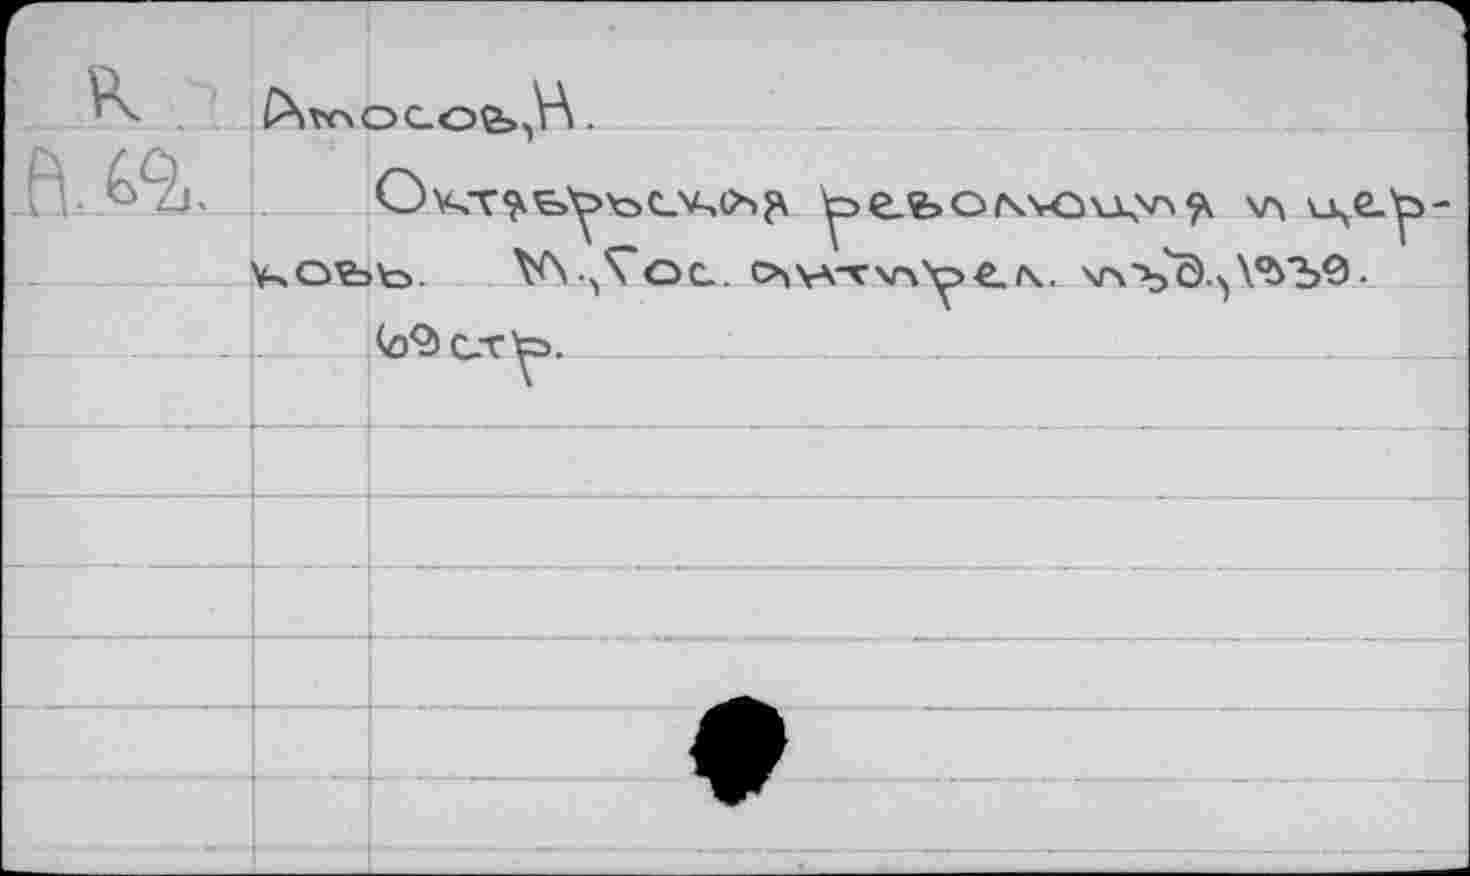 К
Амосов, Н.
А. 62.
Октябрьская революция и цер-
ковь. М., Гос. антирел. изд., 1930.
69 стр.